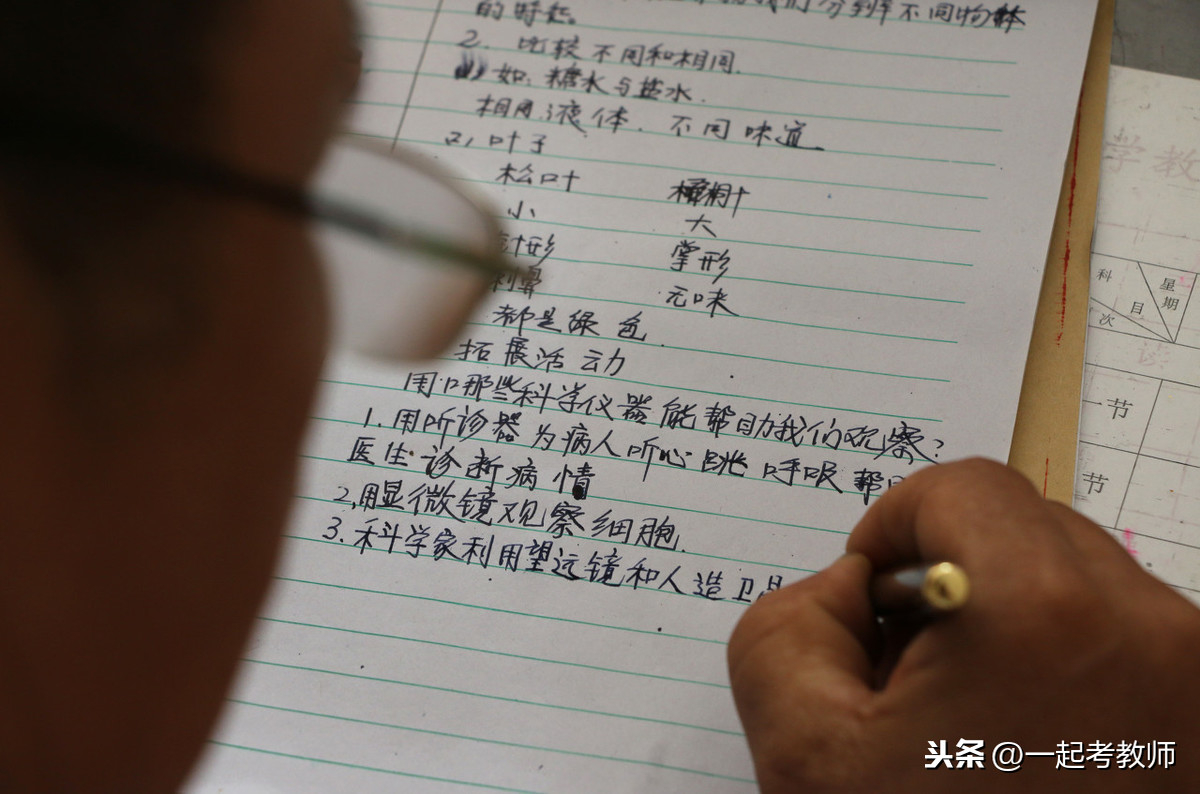 我们分辨不同物体
的特征。
2. 比较不同和相同.
如: 糖水与盐水.
相同:液体. 不同 味道
2, 叶子
松叶 梧桐叶
小 大
针形 掌形
刺鼻 无味
都是绿色.
拓展活动
用哪些科学仪器能帮助我们观察?
1.用听诊器为病人听心跳呼吸帮
医生诊断病情
2,用显微镜观察细胞.
3.科学家利用望远镜和人造卫星
学教
科目
星期
次
读
一节
节
头条 @一起考教师